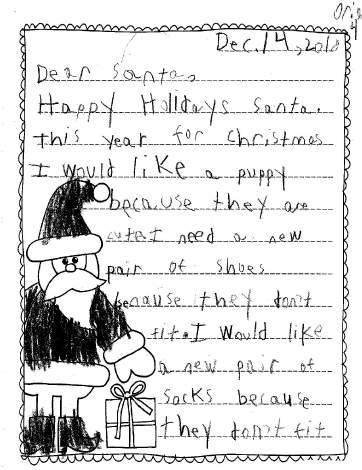 Dec. 14, 2018
Dear Santa,
Happy Holidays Santa.
This year for christmas
I would like a puppy
because they are
cute. I need a new
pair of shoes
because they don't
fit. I would like
a new pair of
socks because
they don't fit